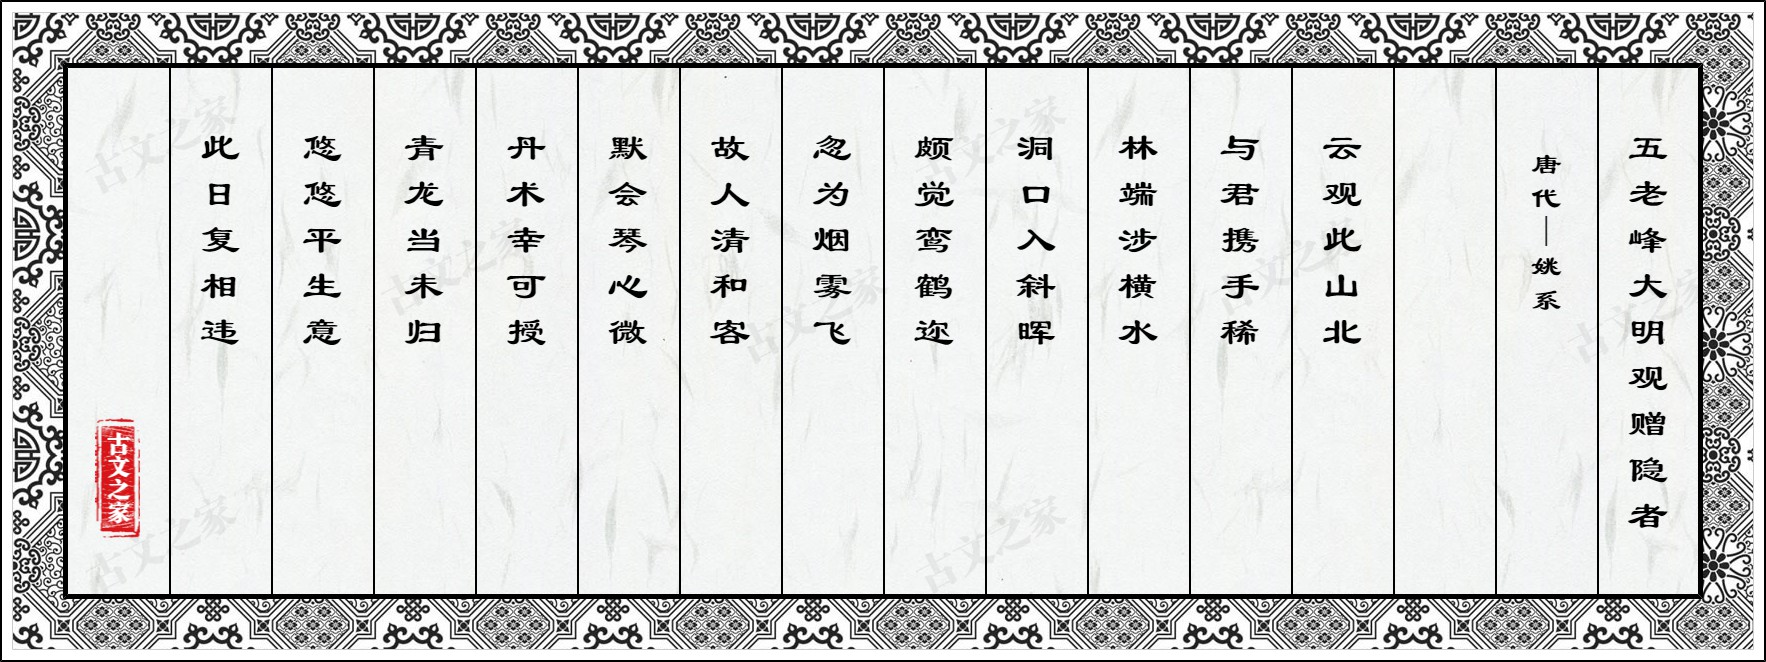 五老峰大明观赠隐者
唐代—姚系
云观此山北
与君携手稀
林端涉横水
洞口入斜晖
颇觉鸾鹤迩
忽为烟雾飞
故人清和客
默会琴心微
丹术幸可授
青龙当未归
悠悠平生意
此日复相违
古文之家